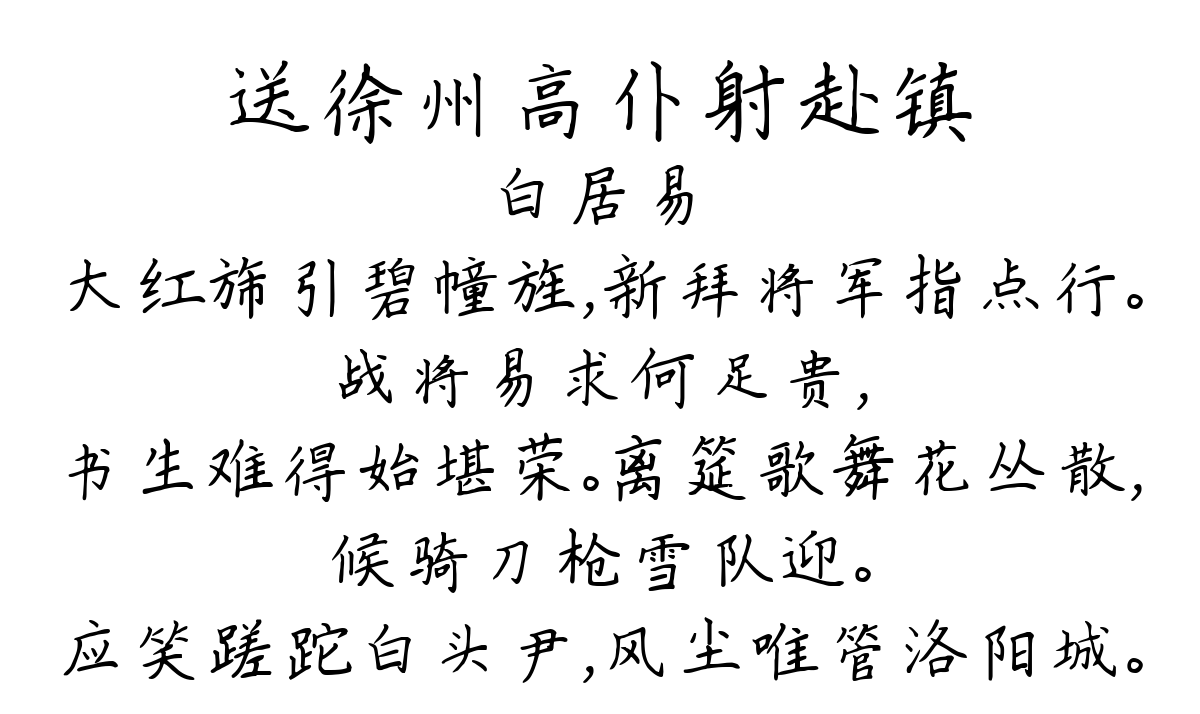 送徐州高仆射赴镇
白居易
大红旆引碧幢旌,新拜将军指点行。
战将易求何足贵,
书生难得始堪荣。离筵歌舞花丛散,
候骑刀枪雪队迎。
应笑蹉跎白头尹,风尘唯管洛阳城。